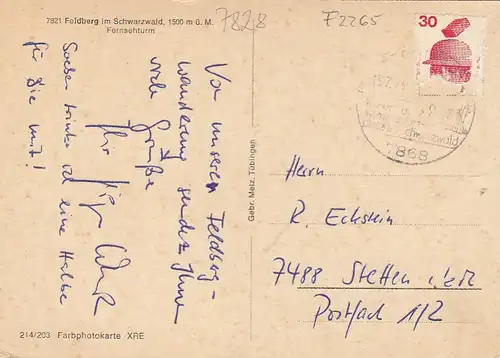 7821 Feldberg im Schwarzwald, 1500 m ü. M.
Fernsehturm
7828
F2265
30
7868
Von unserer Feldberg-
wanderung sendet Ihnen
viele Grüße
Ihr
Soeben trinke ich eine Halbe
für Sie mit!
Gebr. Metz, Tübingen
Herrn
R. Eckstein
7488 Stetten
Postfach 1/2
214/203 Farbphotokarte XRE